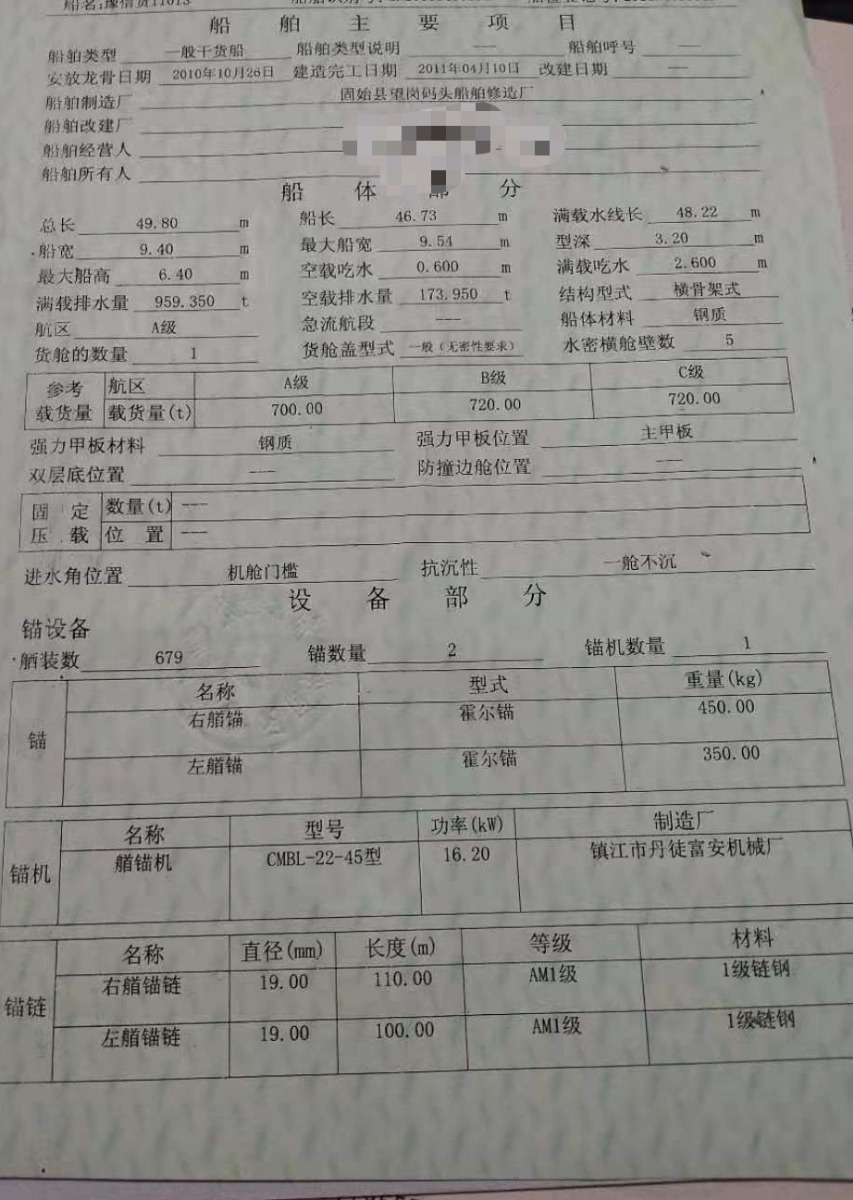 船名:豫信货11013
船舶主要项目
船舶类型 一般干货船 船舶类型说明 --- 船舶呼号 ---
安放龙骨日期 2010年10月26日 建造完工日期 2011年04月10日 改建日期 ---
船舶制造厂 固始县望岗码头船舶修造厂
船舶改建厂
船舶经营人
船舶所有人
船体部分
总长 49.80 m 船长 46.73 m 满载水线长 48.22 m
船宽 9.40 m 最大船宽 9.54 m 型深 3.20 m
最大船高 6.40 m 空载吃水 0.600 m 满载吃水 2.600 m
满载排水量 959.350 t 空载排水量 173.950 t 结构型式 横骨架式
航区 A级 急流航段 --- 船体材料 钢质
货舱的数量 1 货舱盖型式 一般(无密性要求) 水密横舱壁数 5
参考 航区 A级 B级 C级
载货量 载货量(t) 700.00 720.00 720.00
强力甲板材料 钢质 强力甲板位置 主甲板
双层底位置 --- 防撞边舱位置 ---
固定 数量(t) ---
压载 位置 ---
进水角位置 机舱门槛 抗沉性 一舱不沉
设备部分
锚设备
舾装数 679 锚数量 2 锚机数量 1
名称 型式 重量(kg)
锚 右艏锚 霍尔锚 450.00
左艏锚 霍尔锚 350.00
名称 型号 功率(kW) 制造厂
锚机 艏锚机 CMBL-22-45型 16.20 镇江市丹徒富安机械厂
名称 直径(mm) 长度(m) 等级 材料
锚链 右艏锚链 19.00 110.00 AM1级 1级链钢
左艏锚链 19.00 100.00 AM1级 1级链钢